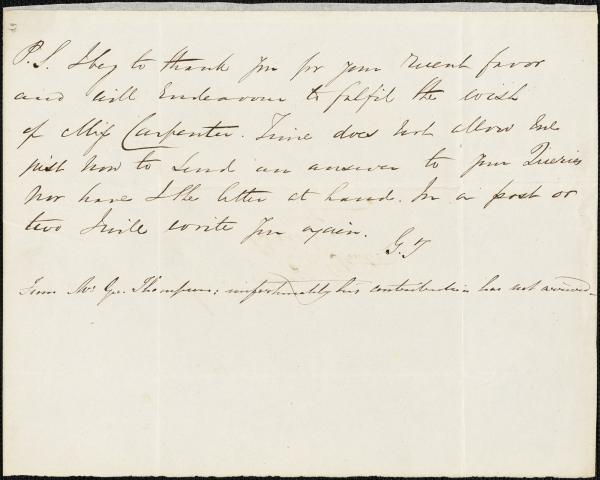 P.S. I beg to thank you for your recent favor
and will Endeavour to fulfil the wish
of Miss Carpenter. Time does not allow me
just now to send an answer to your Queries
nor have I the letter at hand. In a post or
two I will write you again.
G. T
From Mr. Geo. Thompson; unfortunately his contribution has not arrived